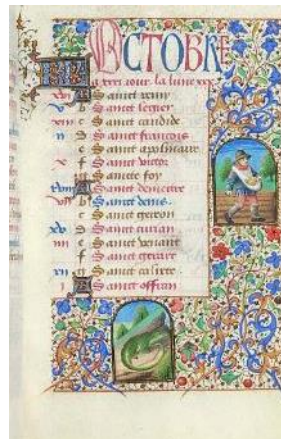 OCTOBRE
a xxxi iour. la lune xxx.
xvi A Sainct remy
v b Sainct legier
xiii c Sainct candide
ii d Sainct francois
e Sainct apolinaire
x f Sainct victor
g Saincte foy
xviii A Sainct demettre
vii b Sainct denis.
c Sainct gereon
xv d Sainct
iiii e Sainct venant
f Sainct gerart
xii g Sainct calixte
i A Sainct